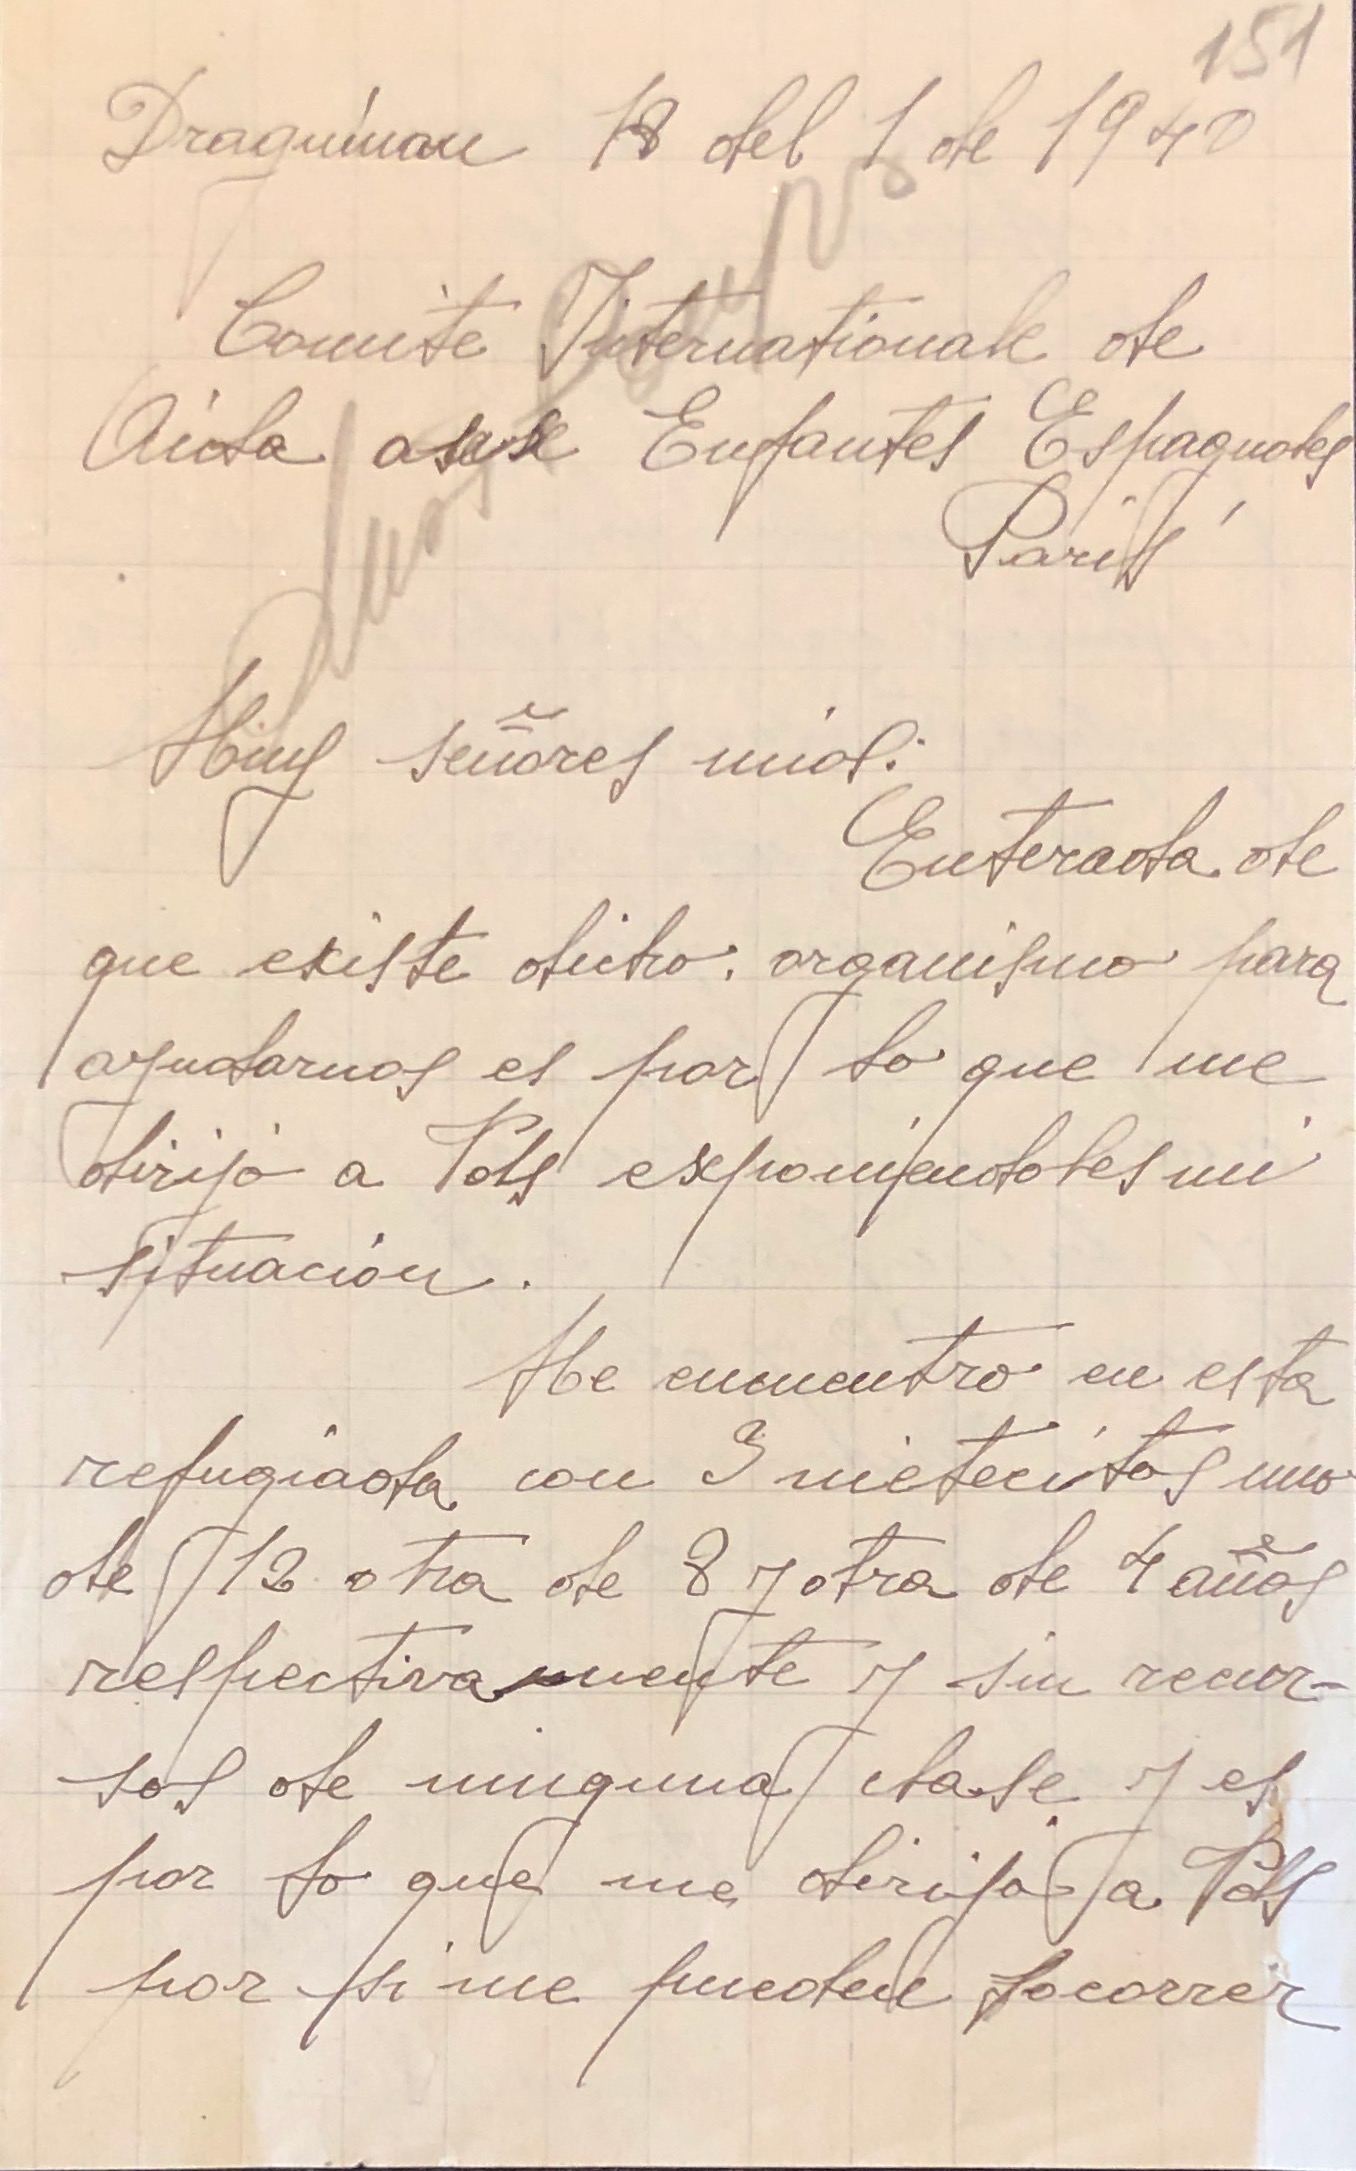 151
Draguínan 18 del 1 de 1940
Comite Internationale de
Aida aux Enfantes Espagnoles
Paris
Muy señores mios:
Enterada de
que existe dicho organismo para
ayudarnos es por lo que me
dirijo a Vds exponiendoles mi
situación.
Me encuentro en esta
refugiada con 3 nietecitos uno
de 12 otra de 8 y otra de 4 años
respectivamente y sin recur-
sos de ninguna clase y es
por lo que me dirijo a Vds
por si me pueden socorrer